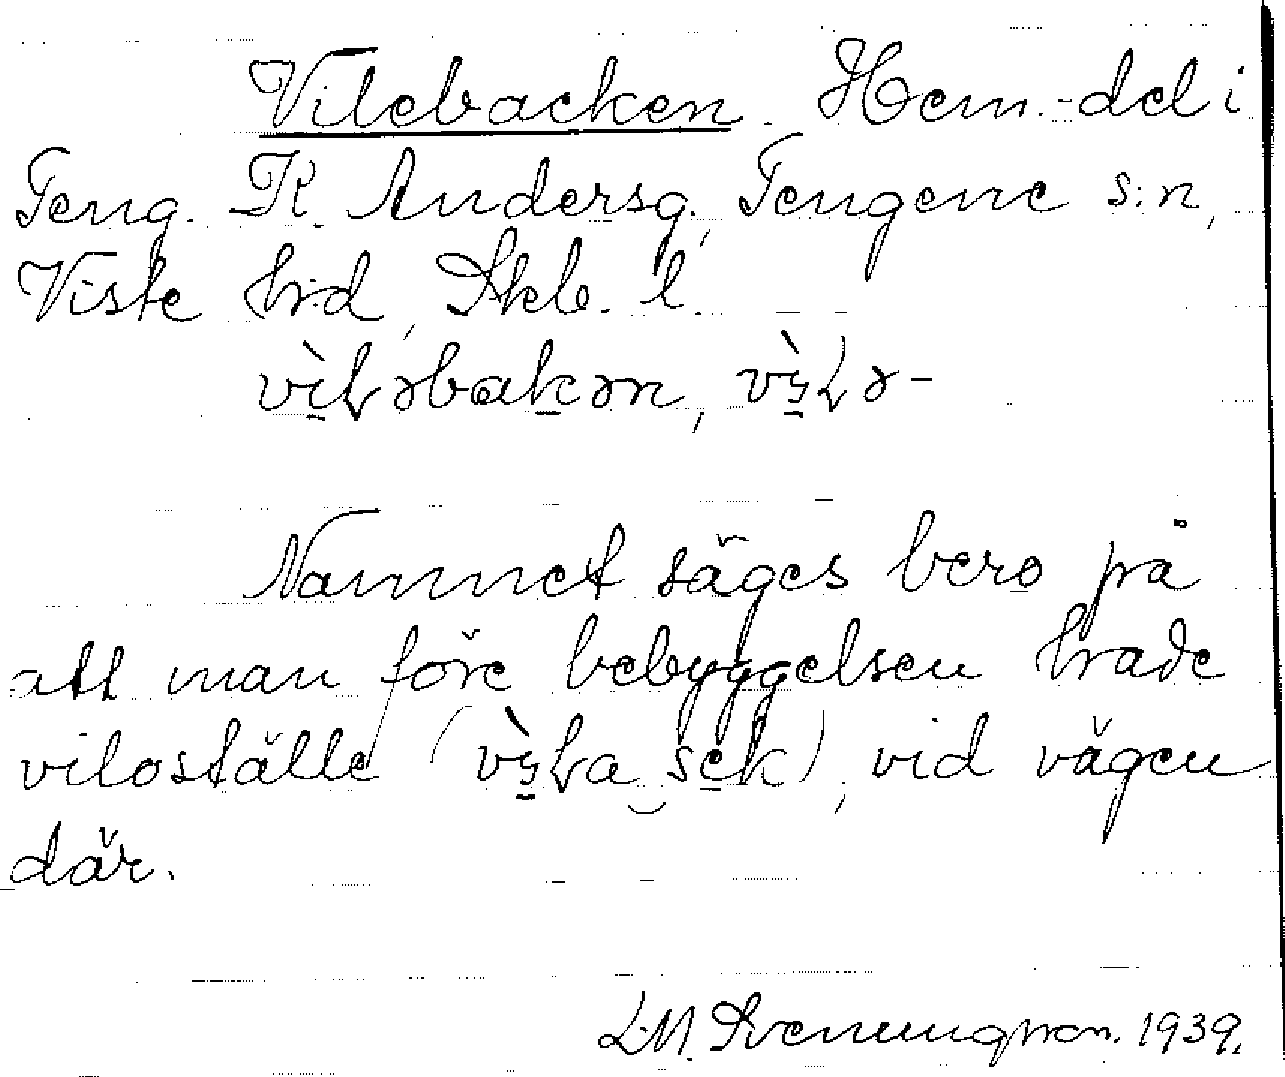 Vilebacken. Hem.-del i
Teng. K. Andersg., Tengene s:n,
Viste h:d, Skb. l.
vìłəbakən, vỳłə-
Namnet säges bero på
att man före bebyggelsen hade
viloställe (vỳła sek), vid vägen
där.
L.M. Svenungsson. 1939.